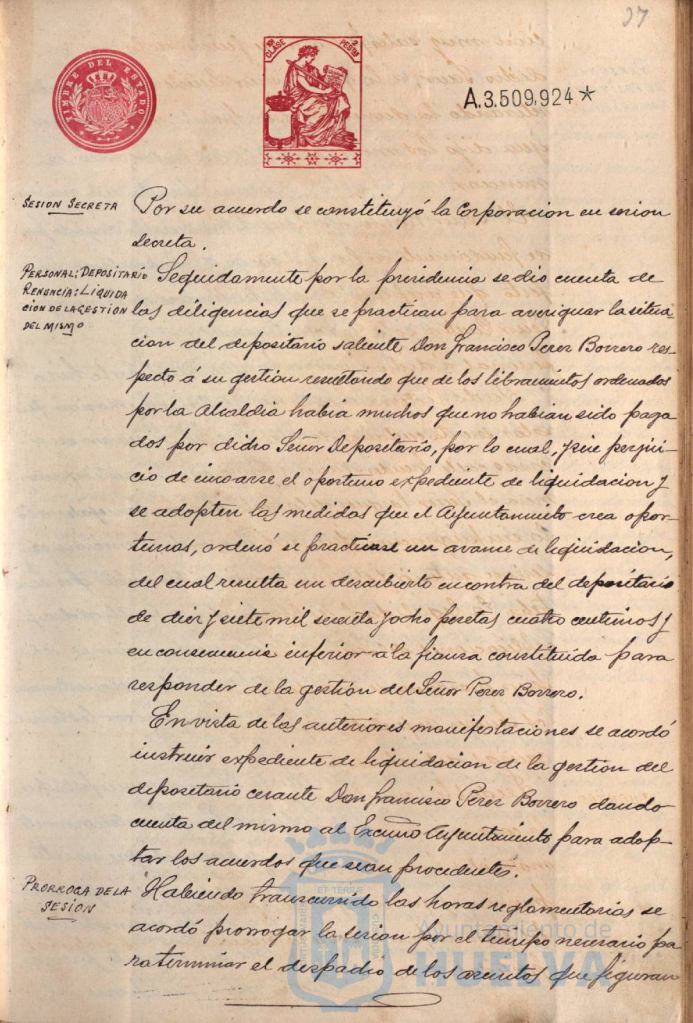 37
TIMBRE DEL ESTADO
CLASE PESETA
A.3.509,924*
SESION SECRETA
Por su acuerdo se constituyó la Corporacion en sesion
secreta.
PERSONAL: DEPOSITARIO
RENUNCIA: LIQUIDA
CION DE LA GESTION
DEL MISMO
Seguidamente por la presidencia se dio cuenta de
las diligencias que se practican para averiguar la situa
cion del depositario saliente Don Francisco Perez Borrero res
pecto á su gestión resultando que de los libramientos ordenados
por la Alcaldia habia muchos que no habian sido paga
dos por dicho Señor Depositario, por lo cual, y sin perjui
cio de incoarse el oportuno expediente de liquidacion y
se adopten las medidas que el Ayuntamiento crea opor
tunas, ordenó se practicase un avance de liquidacion,
del cual resulta un descubierto en contra del depositario
de diez y siete mil sesenta y ocho pesetas cuatro centimos y
en consecuencia inferior á la fianza constituida para
responder de la gestión del Señor Perez Borrero.
En vista de las anteriores manifestaciones se acordó
instruir expediente de liquidacion de la gestion del
depositario cesante Don Francisco Perez Borrero dando
cuenta del mismo al Excmo Ayuntamiento para adop
tar los acuerdos que sean procedentes.
PRORROGA DE LA
SESION
Habiendo transcurrido las horas reglamentarias se
acordó prorrogar la sesion por el tiempo necesario pa
ra terminar el despacho de los asuntos que figuran
Ayuntamiento de
HUELVA